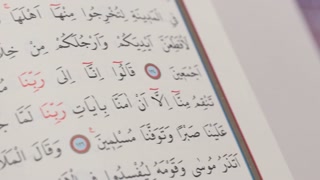 فِي الْمَدِينَةِ لِتُخْرِجُوا مِنْهَا أَهْلَهَا
لَأُقَطِّعَنَّ أَيْدِيَكُمْ وَأَرْجُلَكُمْ مِنْ
أَجْمَعِينَ ﴿١٢٤﴾ قَالُوا إِنَّا إِلَى رَبِّنَا
تَنْقِمُ مِنَّا إِلَّا أَنْ آمَنَّا بِآيَاتِ رَبِّنَا لَمَّا
عَلَيْنَا صَبْرًا وَتَوَفَّنَا مُسْلِمِينَ ﴿١٢٦﴾ وَقَالَ الْمَلَأُ
أَتَذَرُ مُوسَى وَقَوْمَهُ لِيُفْسِدُوا